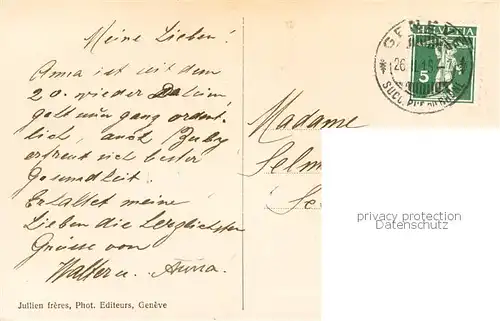 Meine Lieben!
Anna ist seit dem
20. wieder Daheim,
geht nun ganz ordent-
lich, auch Ruby
erfreut sich bester
Gesundheit.
Erhaltet meine
Lieben die herzlichsten
Grüsse von
Walter u. Anna.
Jullien frères, Phot. Editeurs, Genève
Madame
Selm
HELVETIA
5
GENÈVE
26
SUCC.
privacy protection
Datenschutz